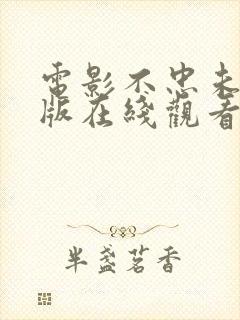 電影不忠未
版在綫觀看
半盞茗香